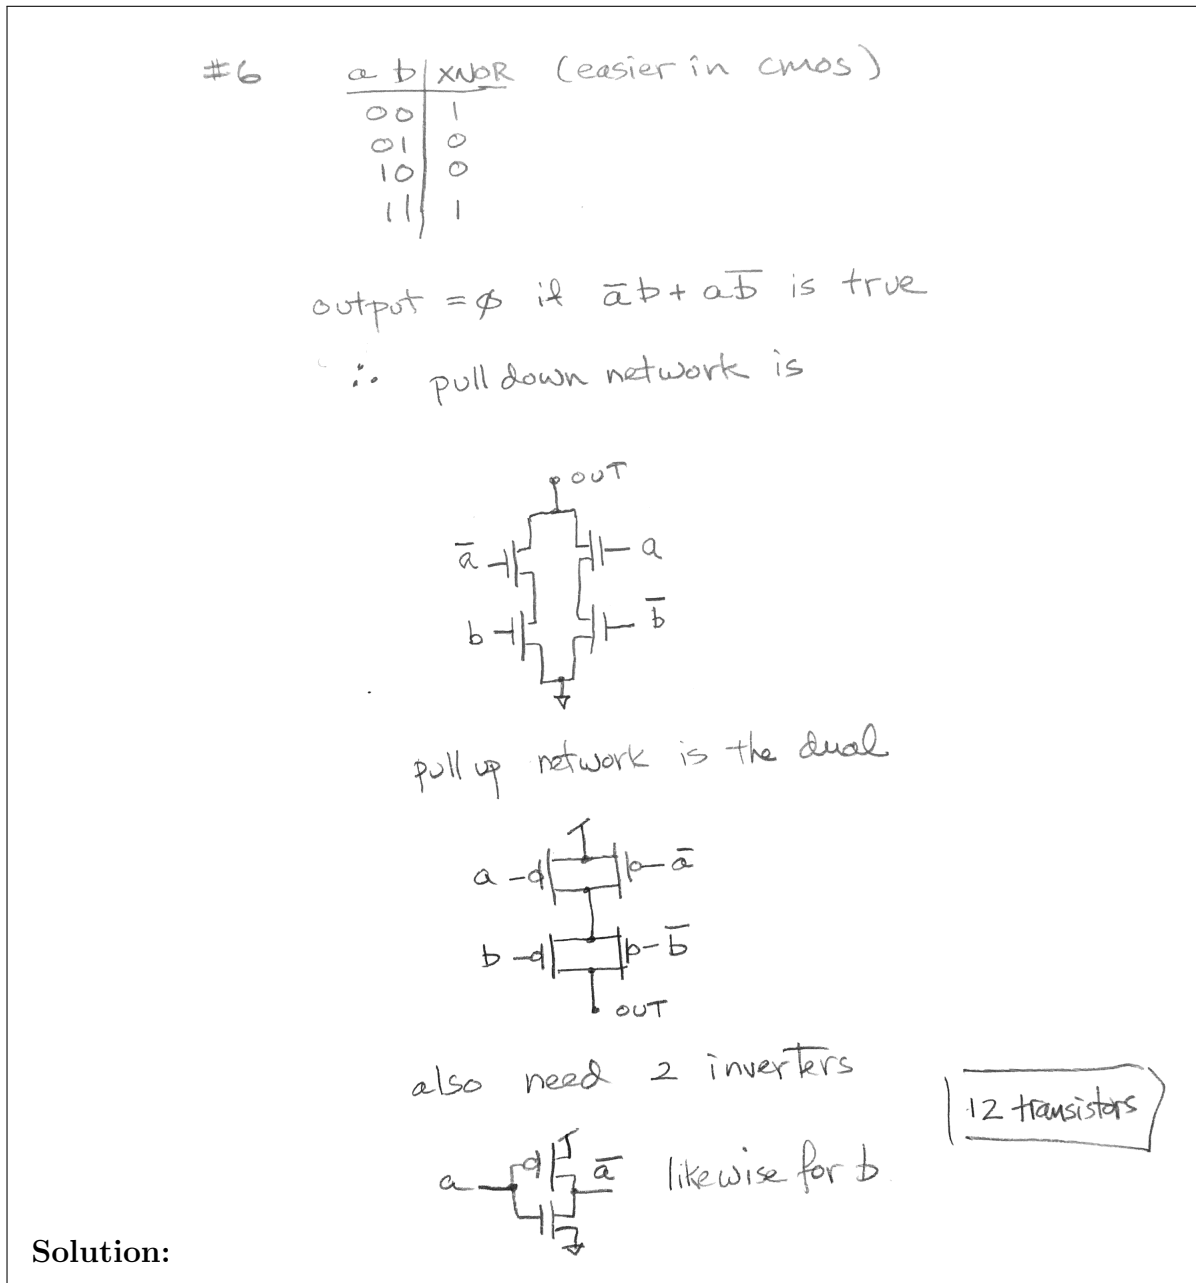 #6 a b XNOR (easier in cmos)
0 0 1
0 1 0
1 0 0
1 1 1
output = ∅ if a̅b + ab̅ is true
∴ pull down network is
OUT
a̅ a
b b̅
pull up network is the dual
a a̅
b b̅
OUT
also need 2 inverters
12 transistors
a a̅ likewise for b
Solution: